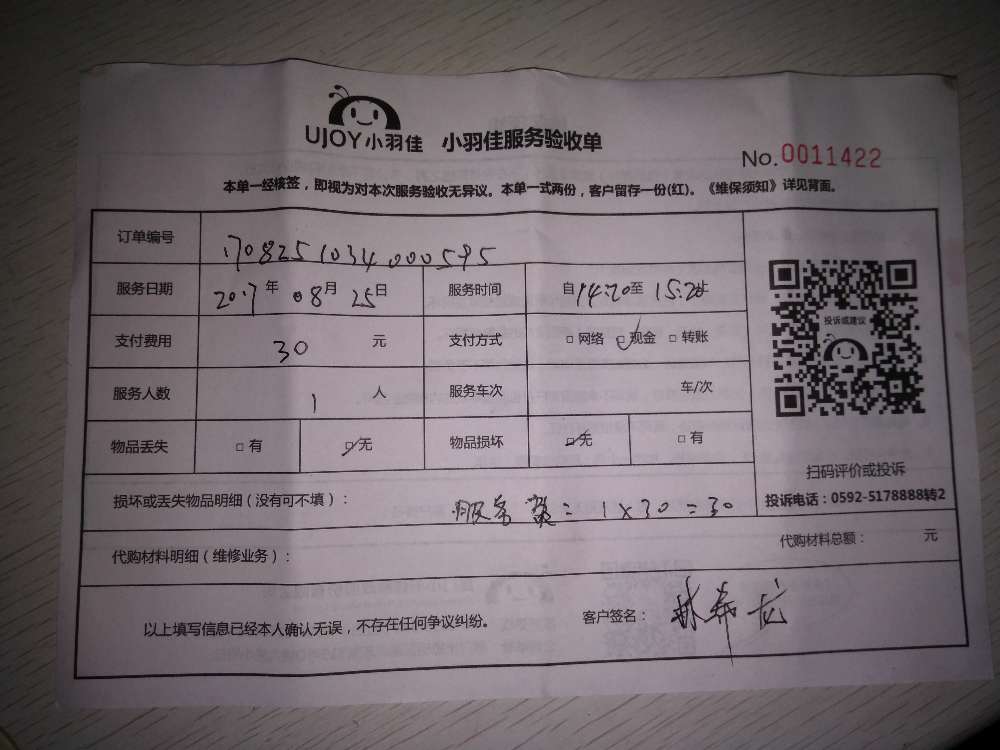 UJOY小羽佳 小羽佳服务验收单
No.0011422
本单一经核签，即视为对本次服务验收无异议。本单一式两份，客户留存一份(红)。《维保须知》详见背面。
订单编号 1708251034000595
服务日期 2017年08月25日 服务时间 自14:20至15:20止
支付费用 30 元 支付方式 □网络 □现金 □转账
投诉或建议
服务人数 1 人 服务车次 车/次
物品丢失 □有 □无 物品损坏 □无 □有
扫码评价或投诉
投诉电话：0592-5178888转2
损坏或丢失物品明细（没有可不填）： 服务费：1×30=30
代购材料明细（维修业务）： 代购材料总额： 元
以上填写信息已经本人确认无误，不存在任何争议纠纷。 客户签名：林希